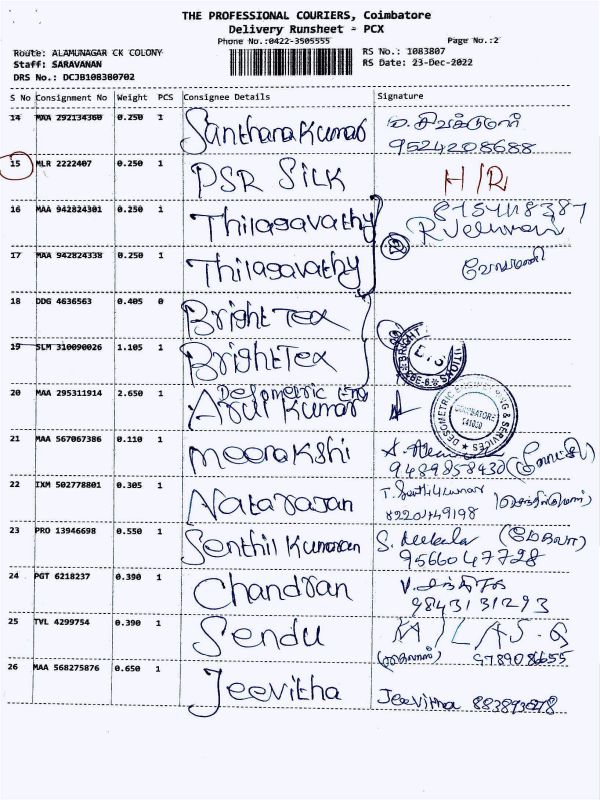 THE PROFESSIONAL COURIERS, Coimbatore
Delivery Runsheet - PCX
Phone No.:0422-3505555 Page No.:2
Route: ALAMUNAGAR CK COLONY RS No.: 1083807
Staff: SARAVANAN RS Date: 23-Dec-2022
DRS No.: DCJB108380702
S No Consignment No Weight PCS Consignee Details Signature
14 MAA 292134360 0.250 1 Santhana Kumar
9524208688
15 MLR 2222407 0.250 1 PSR SILK H/R
16 MAA 942824301 0.250 1 Thilagavathy
17 MAA 942824338 0.250 1 Thilagavathy வேலுமணி
18 DDG 4636563 0.405 0 Bright Tex
19 SLM 310090026 1.105 1 Bright Tex
Desometric Eng
20 MAA 295311914 2.650 1 Arul Kumar
DESOMETRIC ENGINEERING & SERVICES
COIMBATORE
21 MAA 567067386 0.110 1 Meenakshi
9489858430
22 IXM 502778801 0.305 1 Natarajan
23 PRO 13946698 0.550 1 Senthil Kumaran S. Mekala (மேகலா)
9566047728
24 PGT 6218237 0.390 1 Chandran
9843131293
25 TVL 4299754 0.390 1 Sendu
9789086655
26 MAA 568275876 0.650 1 Jeevitha Jeevitha